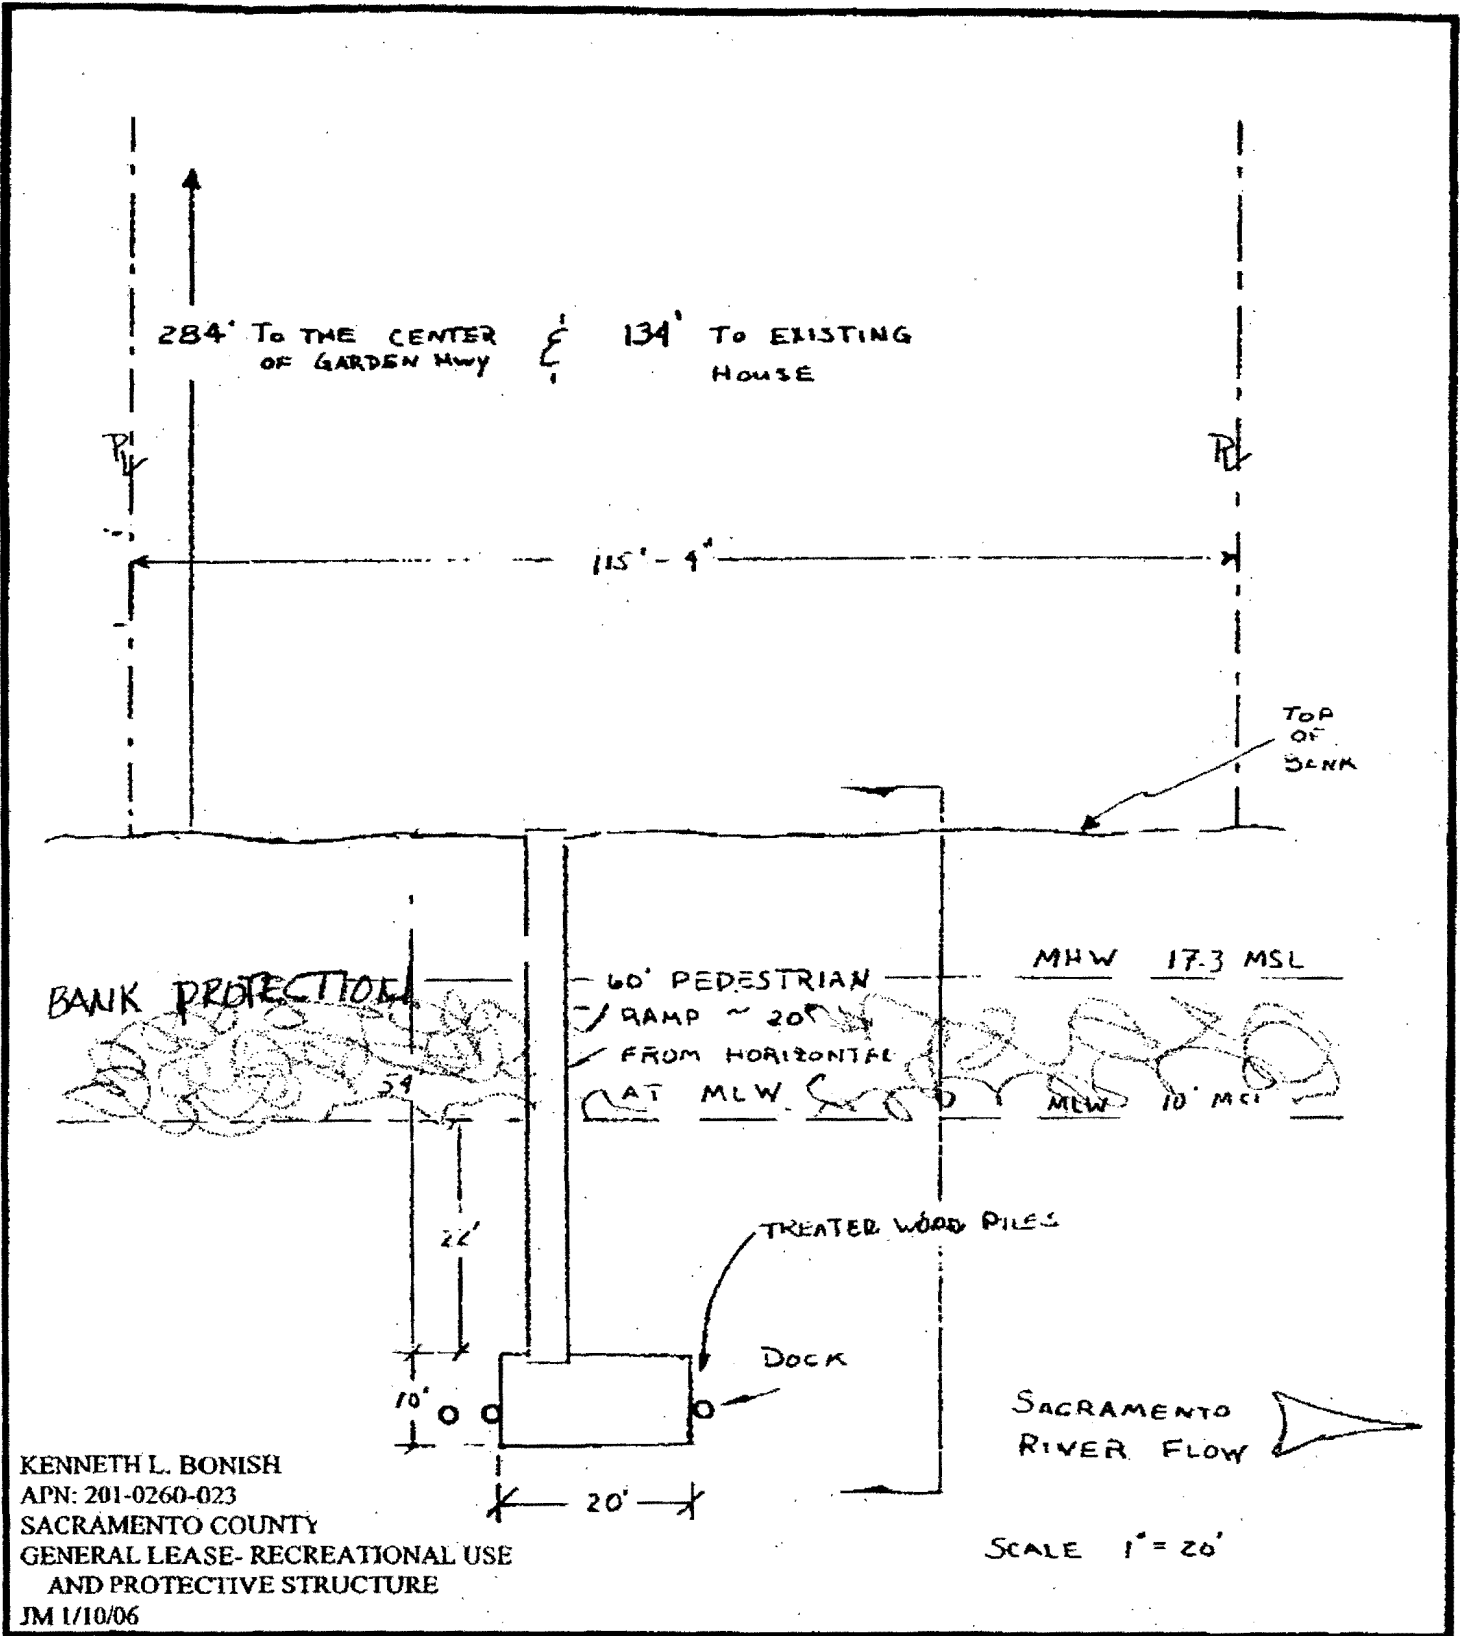 284' TO THE CENTER
OF GARDEN HWY
&
134' TO EXISTING
HOUSE
PL
PL
115' - 4"
TOP
OF
BANK
BANK PROTECTION
60' PEDESTRIAN
RAMP ~ 20°
FROM HORIZONTAL
AT MLW
MHW 17.3 MSL
MLW 10' MSL
22'
TREATED WOOD PILES
DOCK
10'
20'
SACRAMENTO
RIVER FLOW
SCALE 1" = 20'
KENNETH L. BONISH
APN: 201-0260-023
SACRAMENTO COUNTY
GENERAL LEASE- RECREATIONAL USE
AND PROTECTIVE STRUCTURE
JM 1/10/06